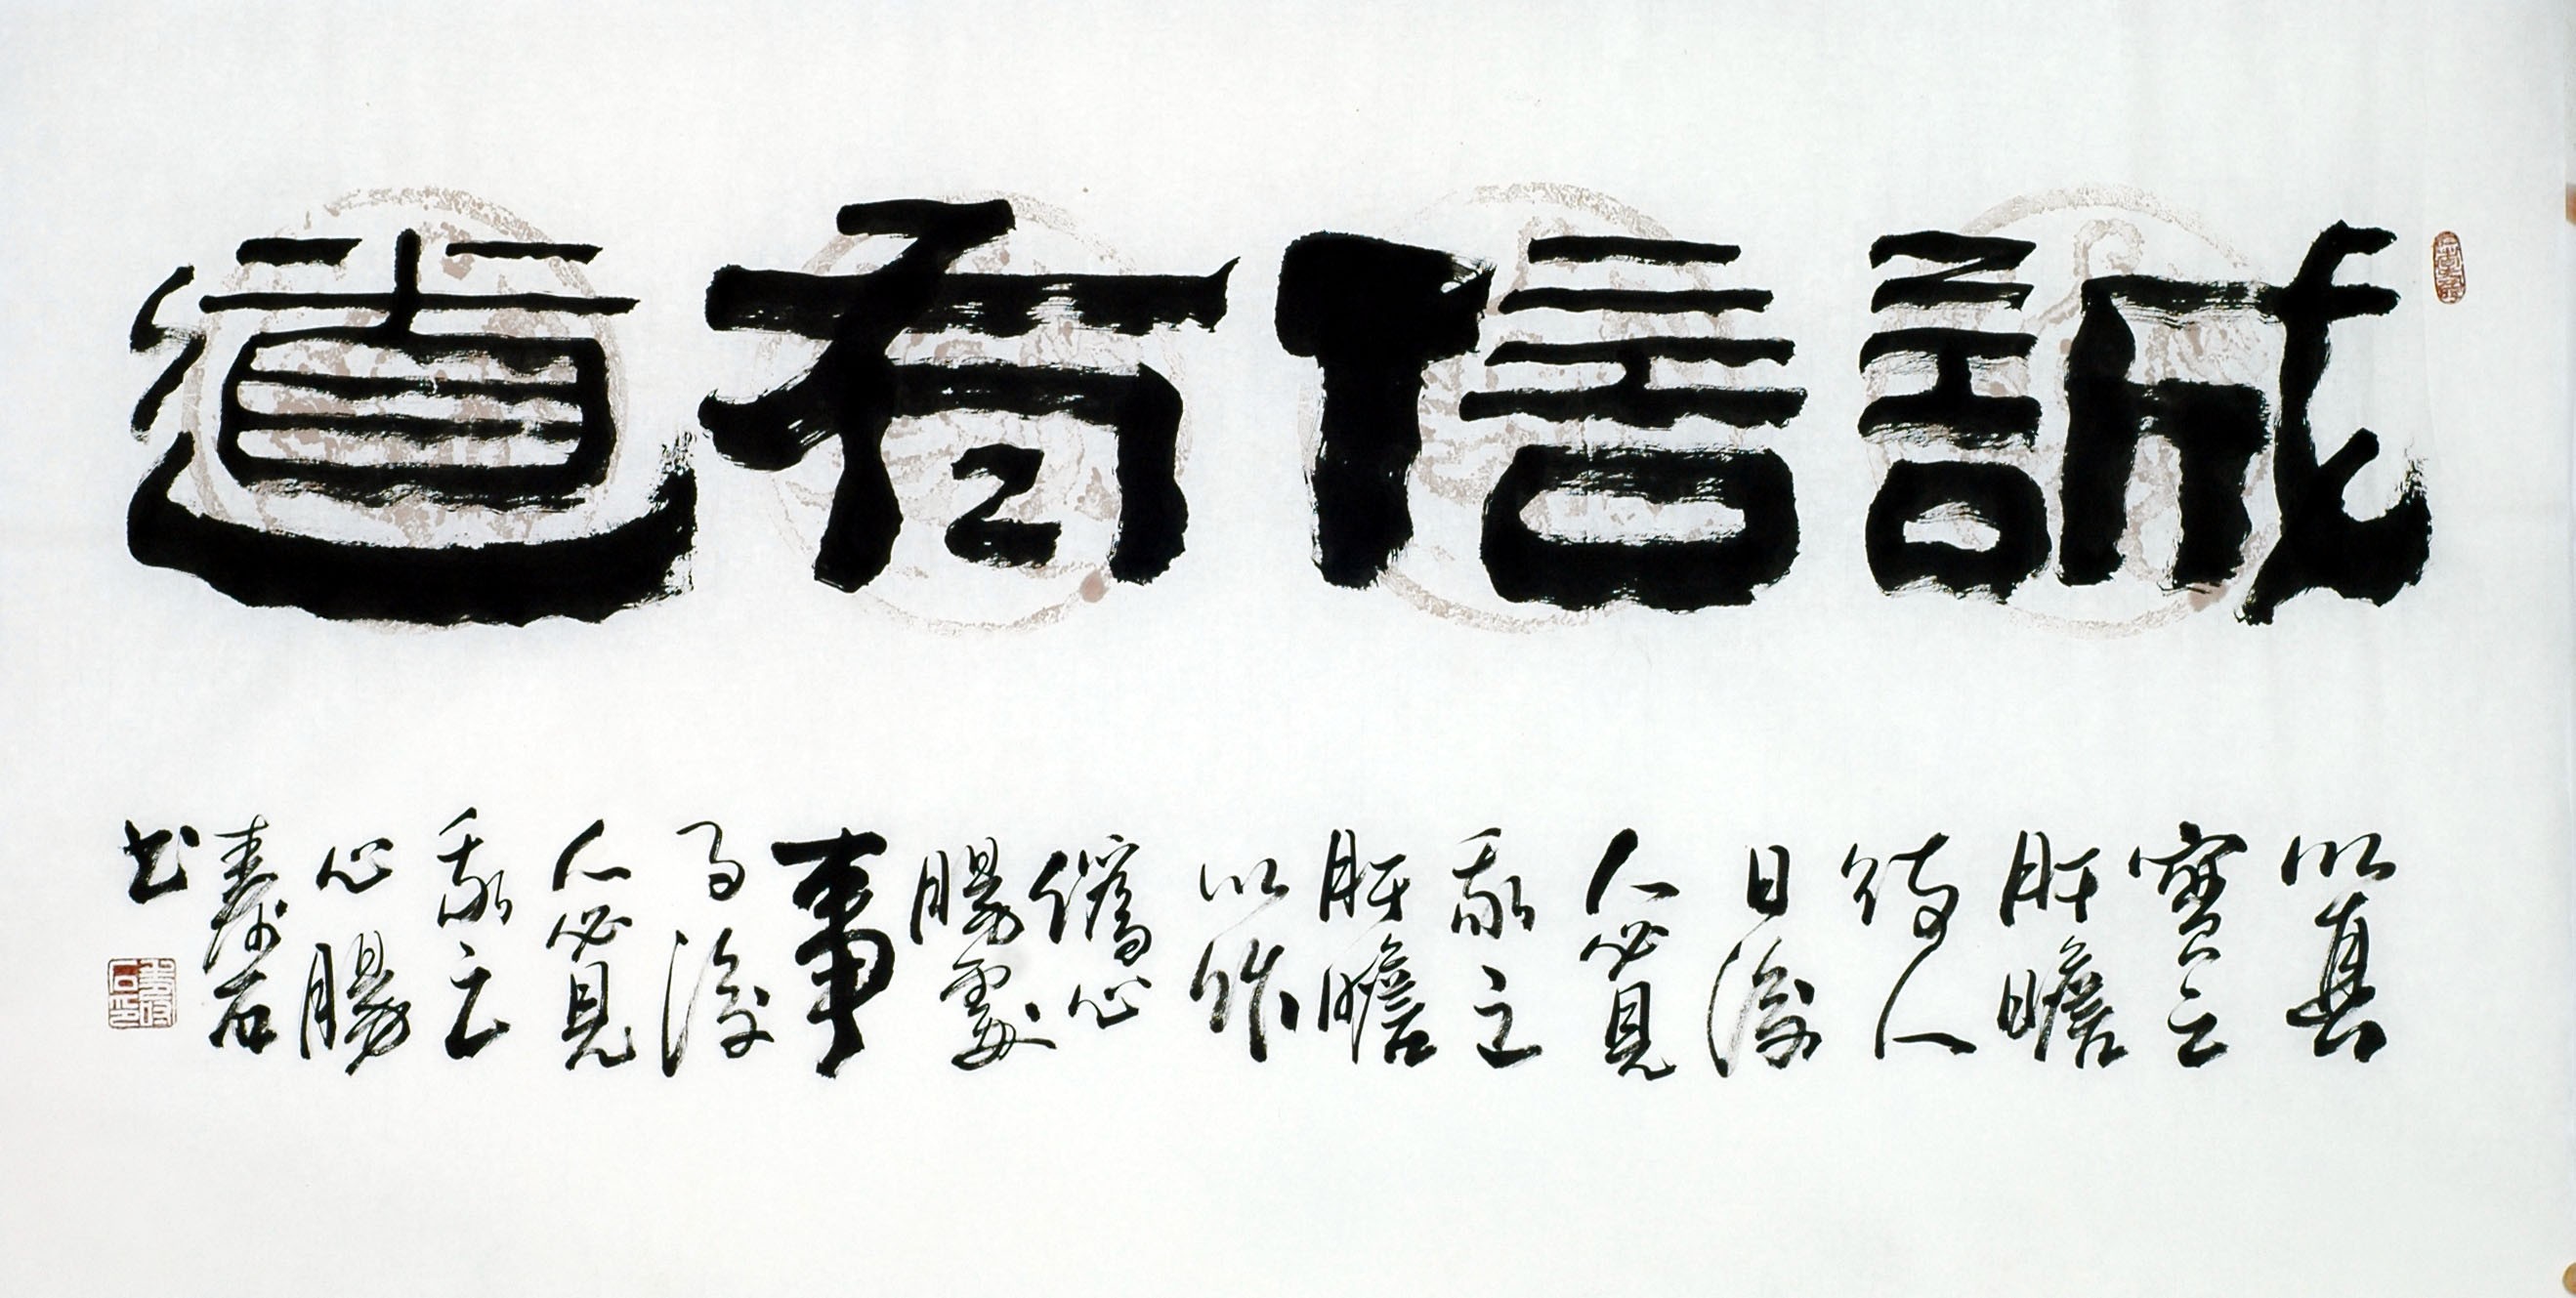 誠信有道
以真
實之
肝膽
待人
日後
人必見
我之
肝膽
以作
偽心
腸處
事
日後
人必見
我之
心腸
石
書